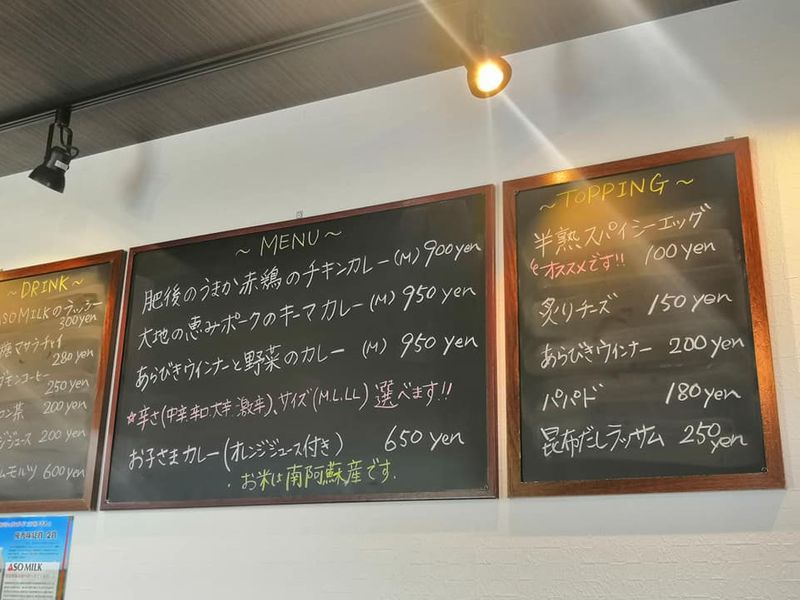 ~ DRINK ~
ASO MILKのラッシー
300yen
マサラチャイ
280yen
モンコーヒー
250yen
ン茶 200yen
ジュース 200yen
ムモルツ 600yen
ASO MILK
~ MENU ~
肥後のうまか赤鶏のチキンカレー(M) 900yen
大地の恵みポークのキーマカレー(M) 950yen
あらびきウインナーと野菜のカレー (M) 950yen
☆辛さ(中辛・辛口・大辛・激辛)、サイズ(M.L.LL)選べます!!
お子さまカレー(オレンジジュース付き) 650yen
・お米は南阿蘇産です.
~ TOPPING ~
半熟スパイシーエッグ
オススメです!! 100yen
炙りチーズ 150yen
あらびきウインナー 200yen
パパド 180yen
昆布だしラッサム 250yen